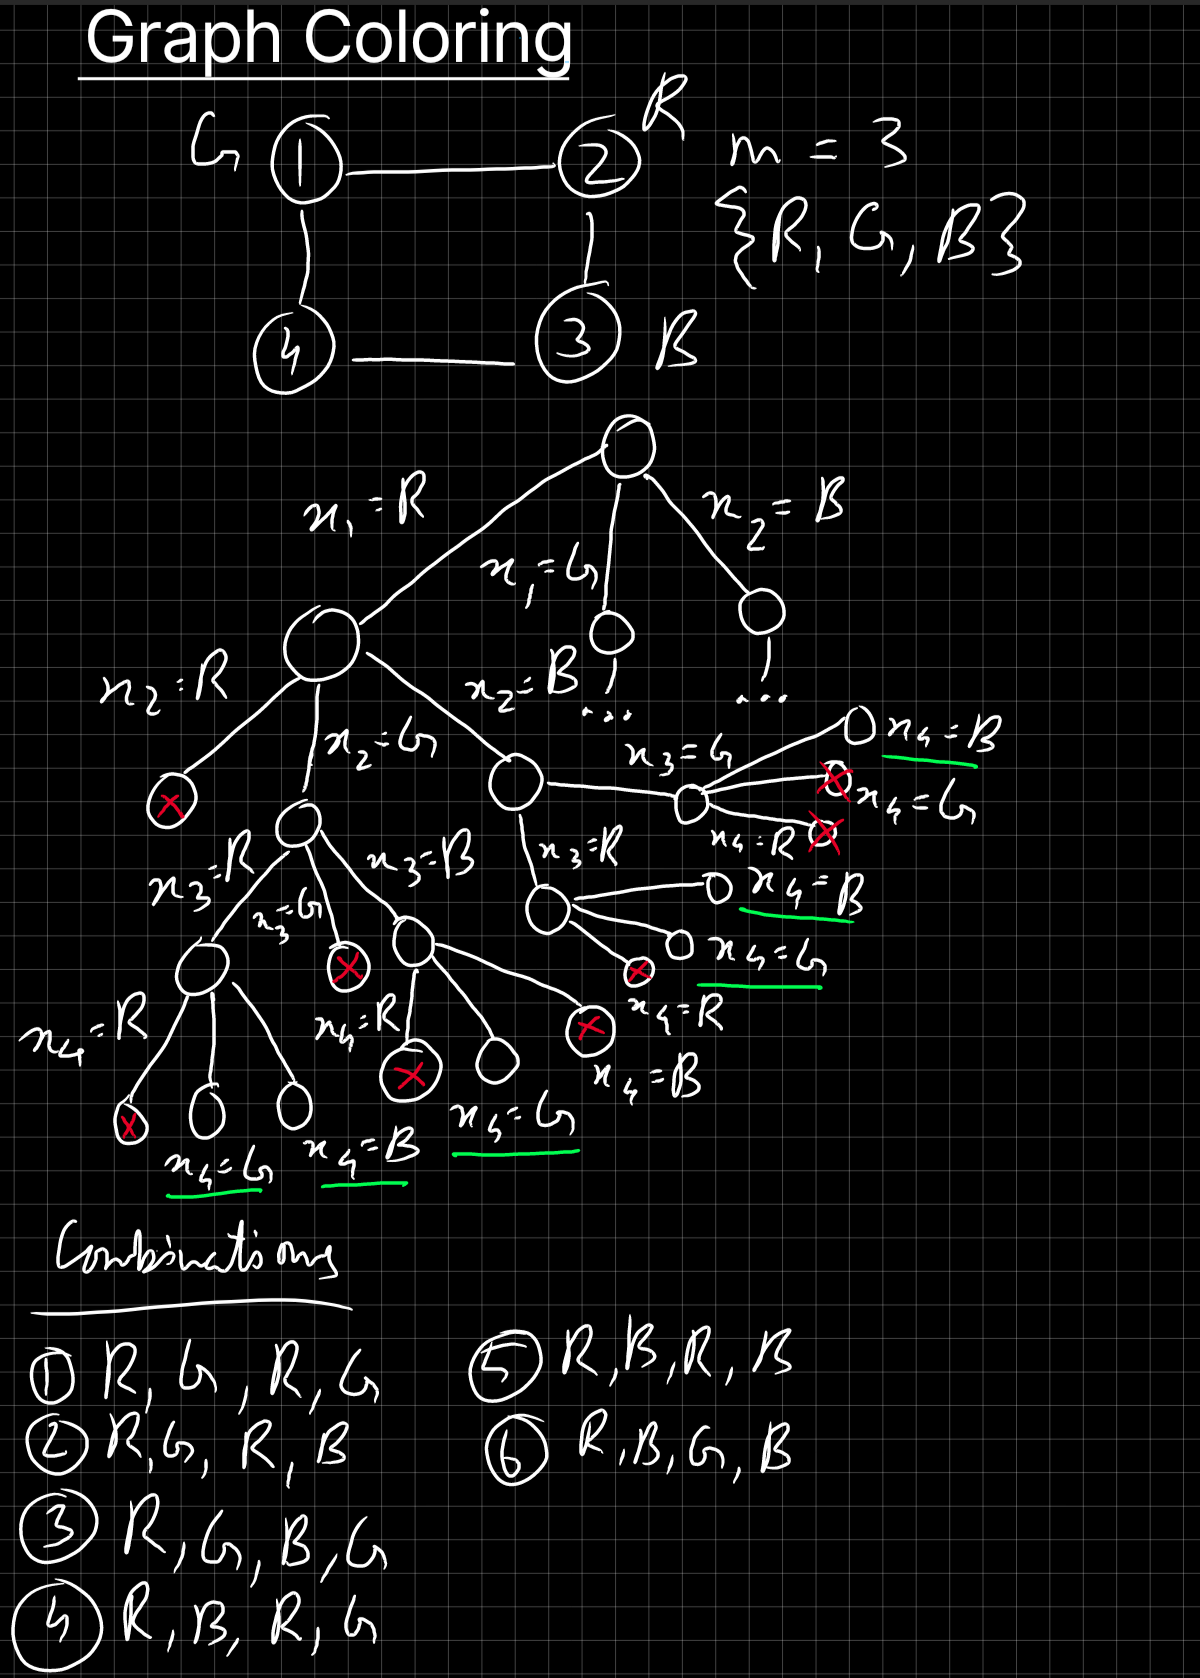 Graph Coloring
R
G 1 2 m = 3
{R, G, B}
4 3 B
x1 = R x2 = B
x1 = G
x2 = R x2 = B ...
...
x2 = G x3 = G x4 = B
x4 = G
x3 = R x3 = B x3 = R x4 = R
x3 = G x4 = B
x4 = G
x4 = R x4 = R x4 = R
x4 = B
x4 = G x4 = B x4 = G
Combinations
1 R, G, R, G
2 R, G, R, B
3 R, G, B, G
4 R, B, R, G
5 R, B, R, B
6 R, B, G, B